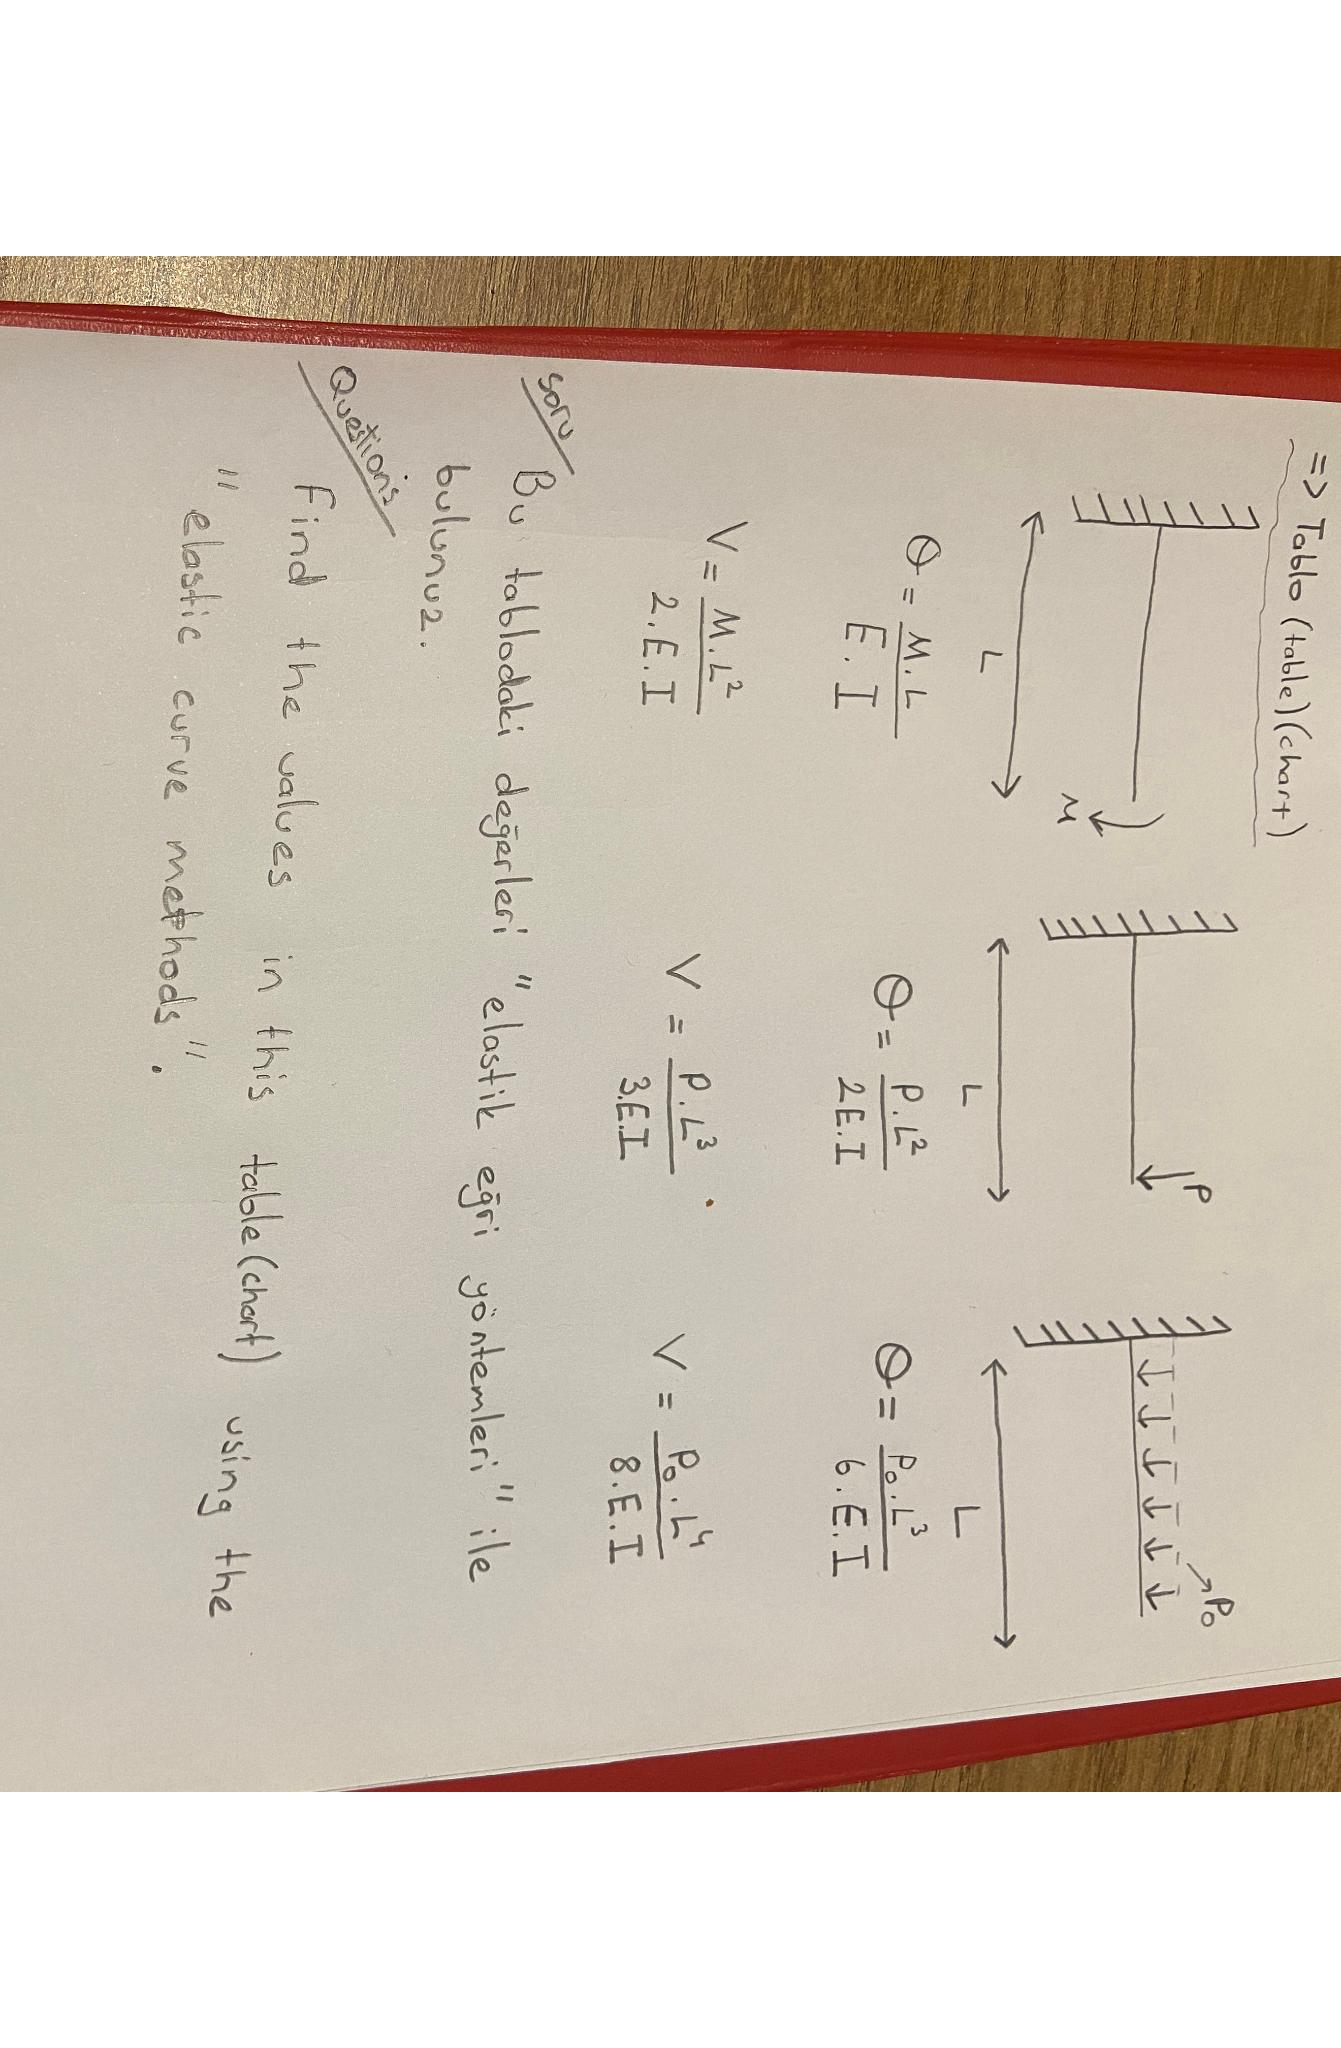 => Tablo (table) (chart)
M
P
P₀
L
L
L
θ = M.L / E.I
θ = P.L² / 2E.I
θ = P₀.L³ / 6.E.I
V = M.L² / 2.E.I
V = P.L³ / 3.E.I
V = P₀.L⁴ / 8.E.I
Soru Bu tablodaki değerleri "elastik eğri yöntemleri" ile
bulunuz.
Question's
Find the values in this table (chart) using the
"elastic curve methods".